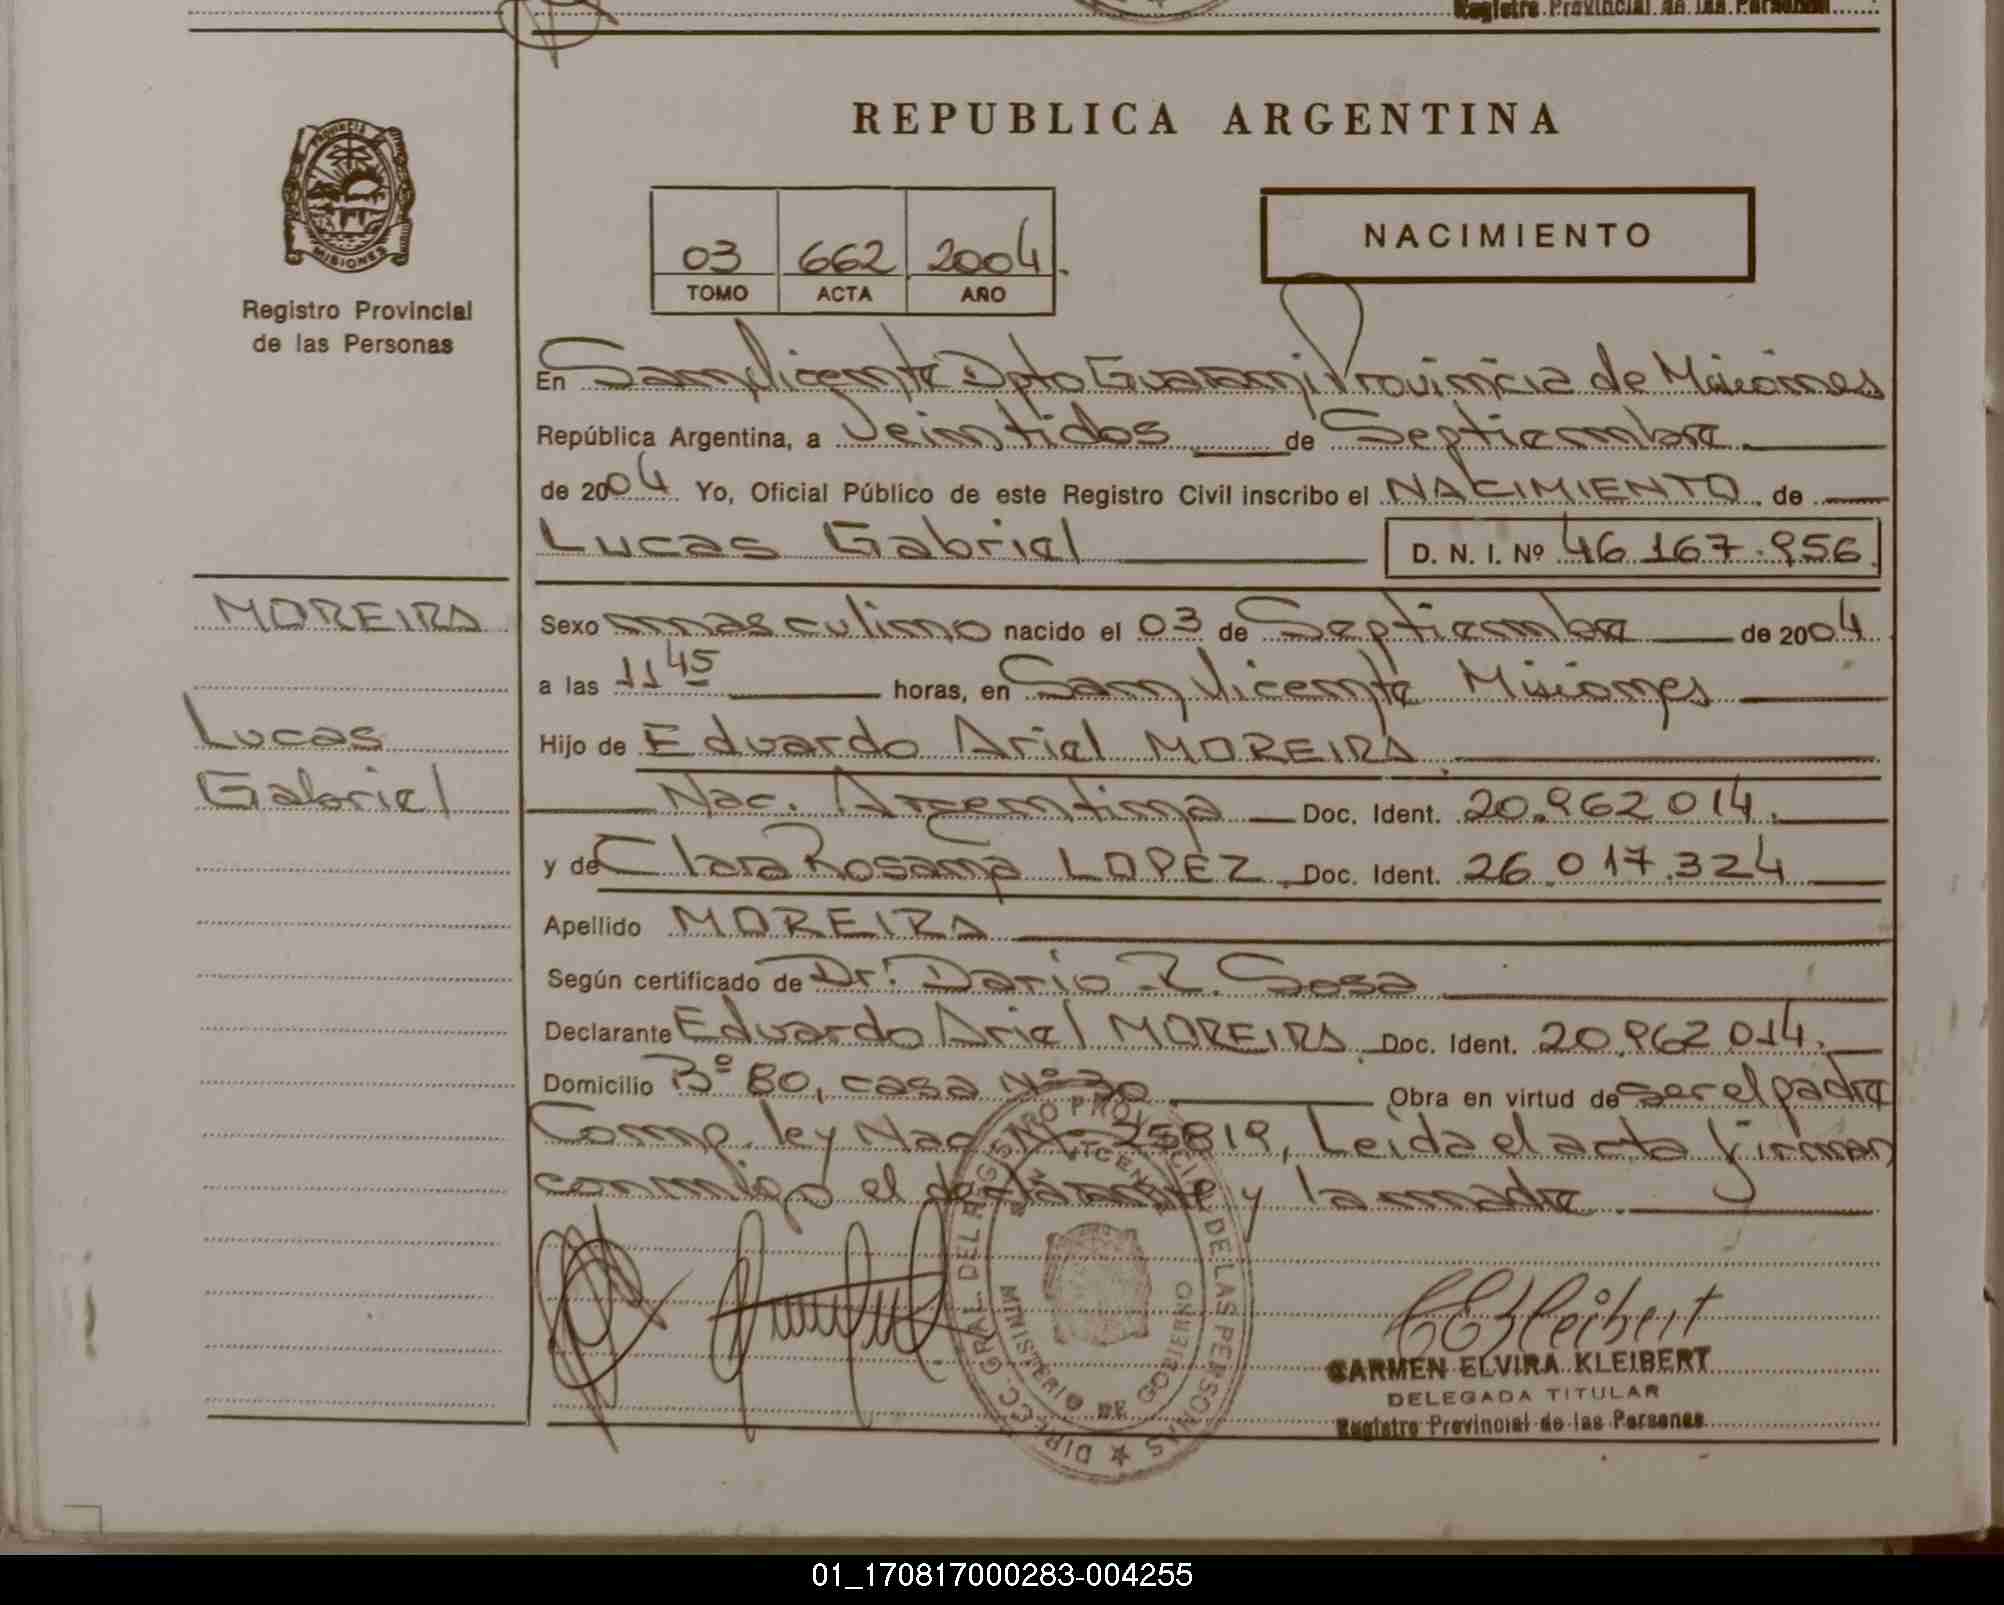 Registro Provincial de las Personas
REPUBLICA ARGENTINA
PROVINCIA DE
MISIONES
Registro Provincial
de las Personas
03 662 2004.
TOMO ACTA AÑO
NACIMIENTO
En San Vicente Dpto Guarani Provincia de Misiones
República Argentina, a Veintidos de Septiembre
de 2004 Yo, Oficial Público de este Registro Civil inscribo el NACIMIENTO de
Lucas Gabriel D. N. I. Nº 46.167.956
MOREIRA
Lucas
Gabriel
Sexo masculino nacido el 03 de Septiembre de 2004
a las 11 45 horas, en San Vicente Misiones
Hijo de Eduardo Ariel MOREIRA
Nac. Argentina Doc. Ident. 20.962 014.
y de Clara Rosana LOPEZ Doc. Ident. 26.017.324
Apellido MOREIRA
Según certificado de Dr. Dario R. Sosa
Declarante Eduardo Ariel MOREIRA Doc. Ident. 20.962 014.
Domicilio Bº 80, casa Nº 30 Obra en virtud de ser el padre
Comp. ley Nac Nº 25819, Leida el acta firman
conmigo el declarante y la madre
DIRECC. GRAL. DEL REGISTRO PROVINCIAL DE LAS PERSONAS
SAN VICENTE
MINISTERIO DE GOBIERNO
CEKleibert
CARMEN ELVIRA KLEIBERT
DELEGADA TITULAR
Registro Provincial de las Personas
01_170817000283-004255